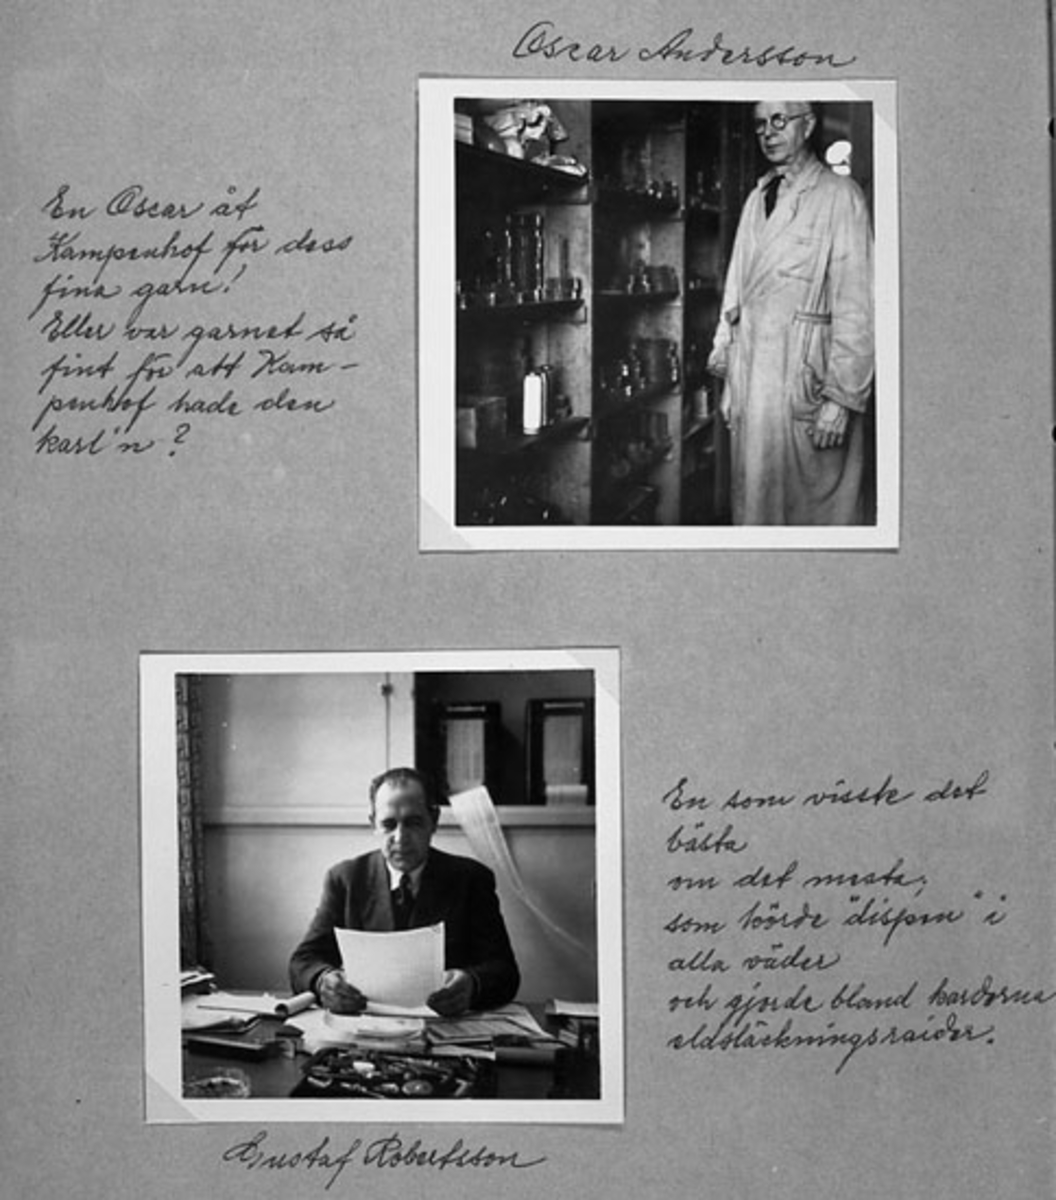 Oscar Andersson
En Oscar åt
Kampenhof för dess
fina garn!
Eller var garnet så
fint för att Kam-
penhof hade den
karl'n?
En som visste det
bästa
om det mesta,
som körde "dispen" i
alla väder
och gjorde bland kardorna
eldsläckningsraider.
Gustaf Robertsson